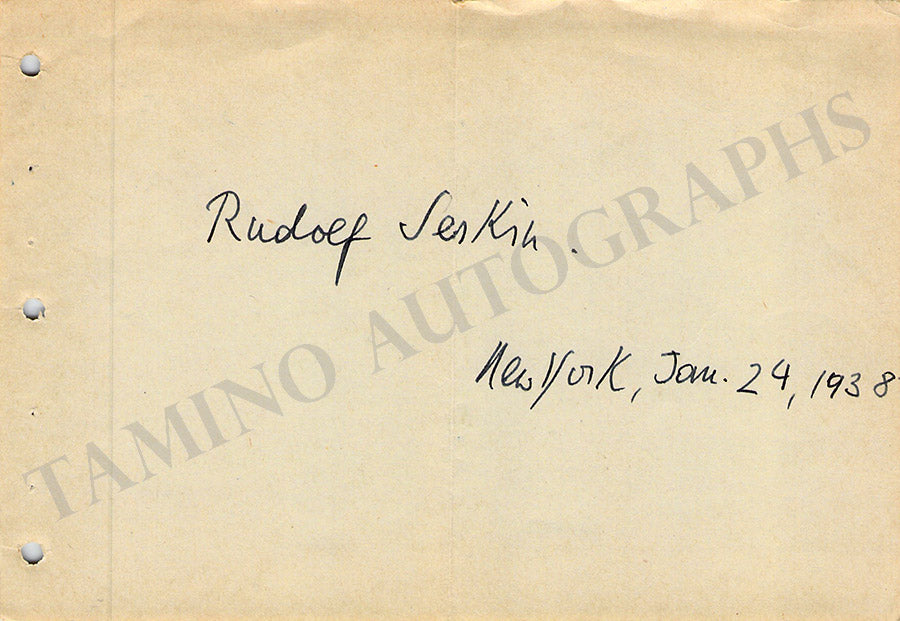 Rudolf Serkin.
New York, Jan. 24, 1938
TAMINO AUTOGRAPHS